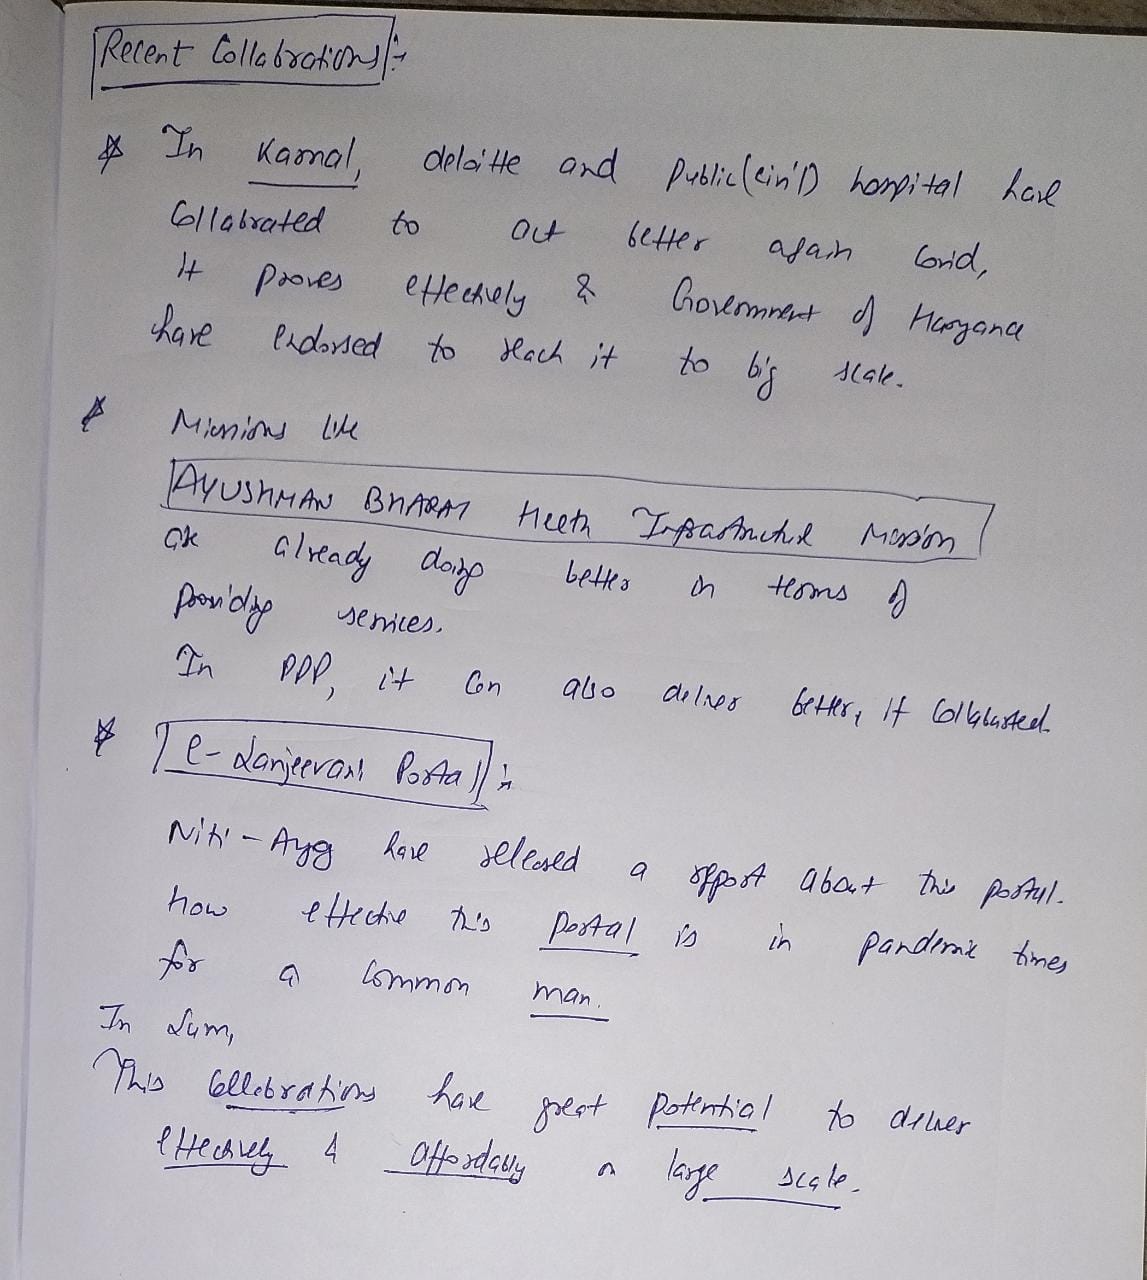 Recent Collabrations :-
* In Karnal, deloitte and Public (civil) hospital have
Collabrated to act better again Covid,
It proves effectively & Government of Haryana
have endorsed to reach it to big scale.
* Missions like
AYUSHMAN BHARAT Heath Infrastructure Mission
are already doing better in terms of
providing services.
In PPP, it can also deliver better, if Collabrated.
* e-Sanjeevani Portal :-
Niti-Ayog have released a report about this portal.
how effective this portal is in pandemic times
for a Common man.
In Sum,
This Collebrations have great potential to deliver
effectively & affordably on large scale.